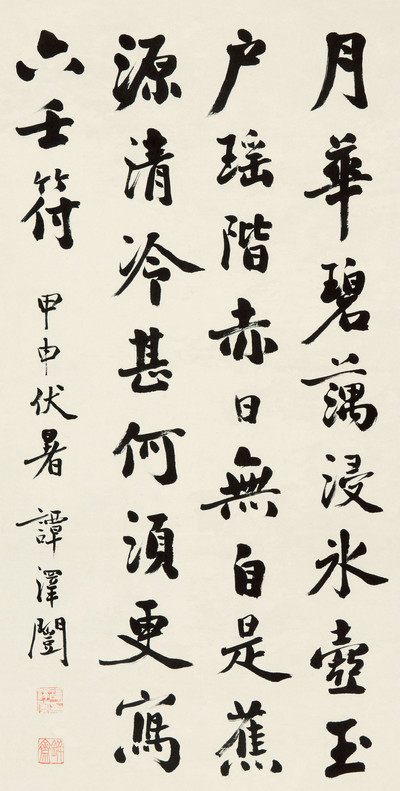 月華碧藕浸氷壺玉
户瑶階赤日無自是蕉
源清冷甚何須更寫
六壬符 甲申伏暑 譚澤闓